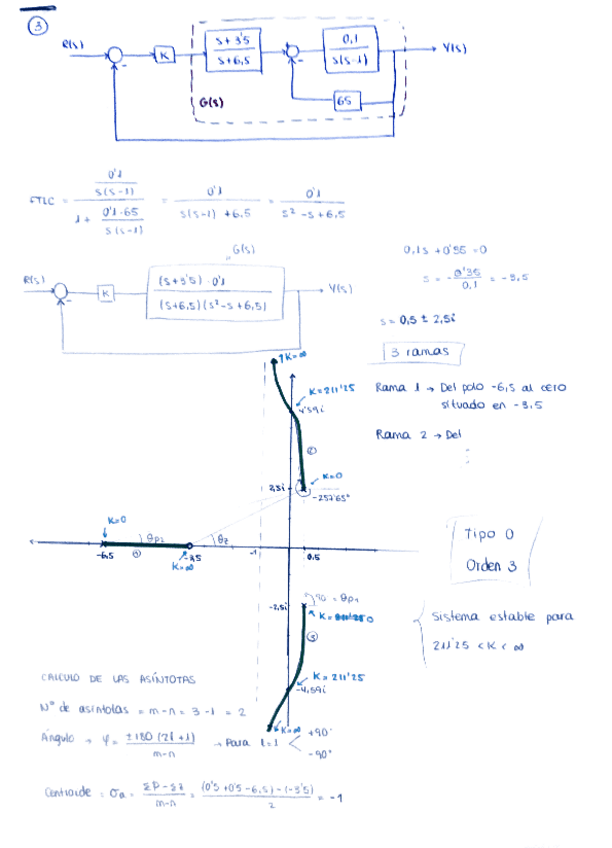 3
R(s)
K
s+3'5
s+6,5
0,1
s(s-1)
Y(s)
-
-
65
G(s)
FTLC = 0'1 / s(s-1) / 1 + 0'1·65 / s(s-1) = 0'1 / s(s-1) +6,5 = 0'1 / s²-s+6,5
"G(s)
R(s)
K
(s+3'5) · 0'1
(s+6,5)(s²-s+6,5)
Y(s)
-
0,1s +0'35 =0
s = - 0'35 / 0,1 = -3,5
s = 0,5 ± 2,5i
3 ramas
Rama 1 → Del polo -6,5 al cero
situado en -3,5
Rama 2 → Del
⋮
K=∞
K=211'25
4'59i
②
K=0
2,5i
-257'65°
K=0
θp2
θz
-6,5
①
-3,5
K=∞
-1
0.5
Tipo 0
Orden 3
-2,5i
90 = θp1
K = 0
③
Sistema estable para
211'25 < K < ∞
K = 211'25
-4,59i
K=∞
CALCULO DE LAS ASÍNTOTAS
Nº de asíntotas = m-n = 3-1 = 2
Ángulo → φ = ±180 (2l+1) / m-n → Para l=1 < +90° -90°
Centroide = σa = ΣP - Σz / m-n = (0'5 +0'5 -6,5) - (-3'5) / 2 = -1